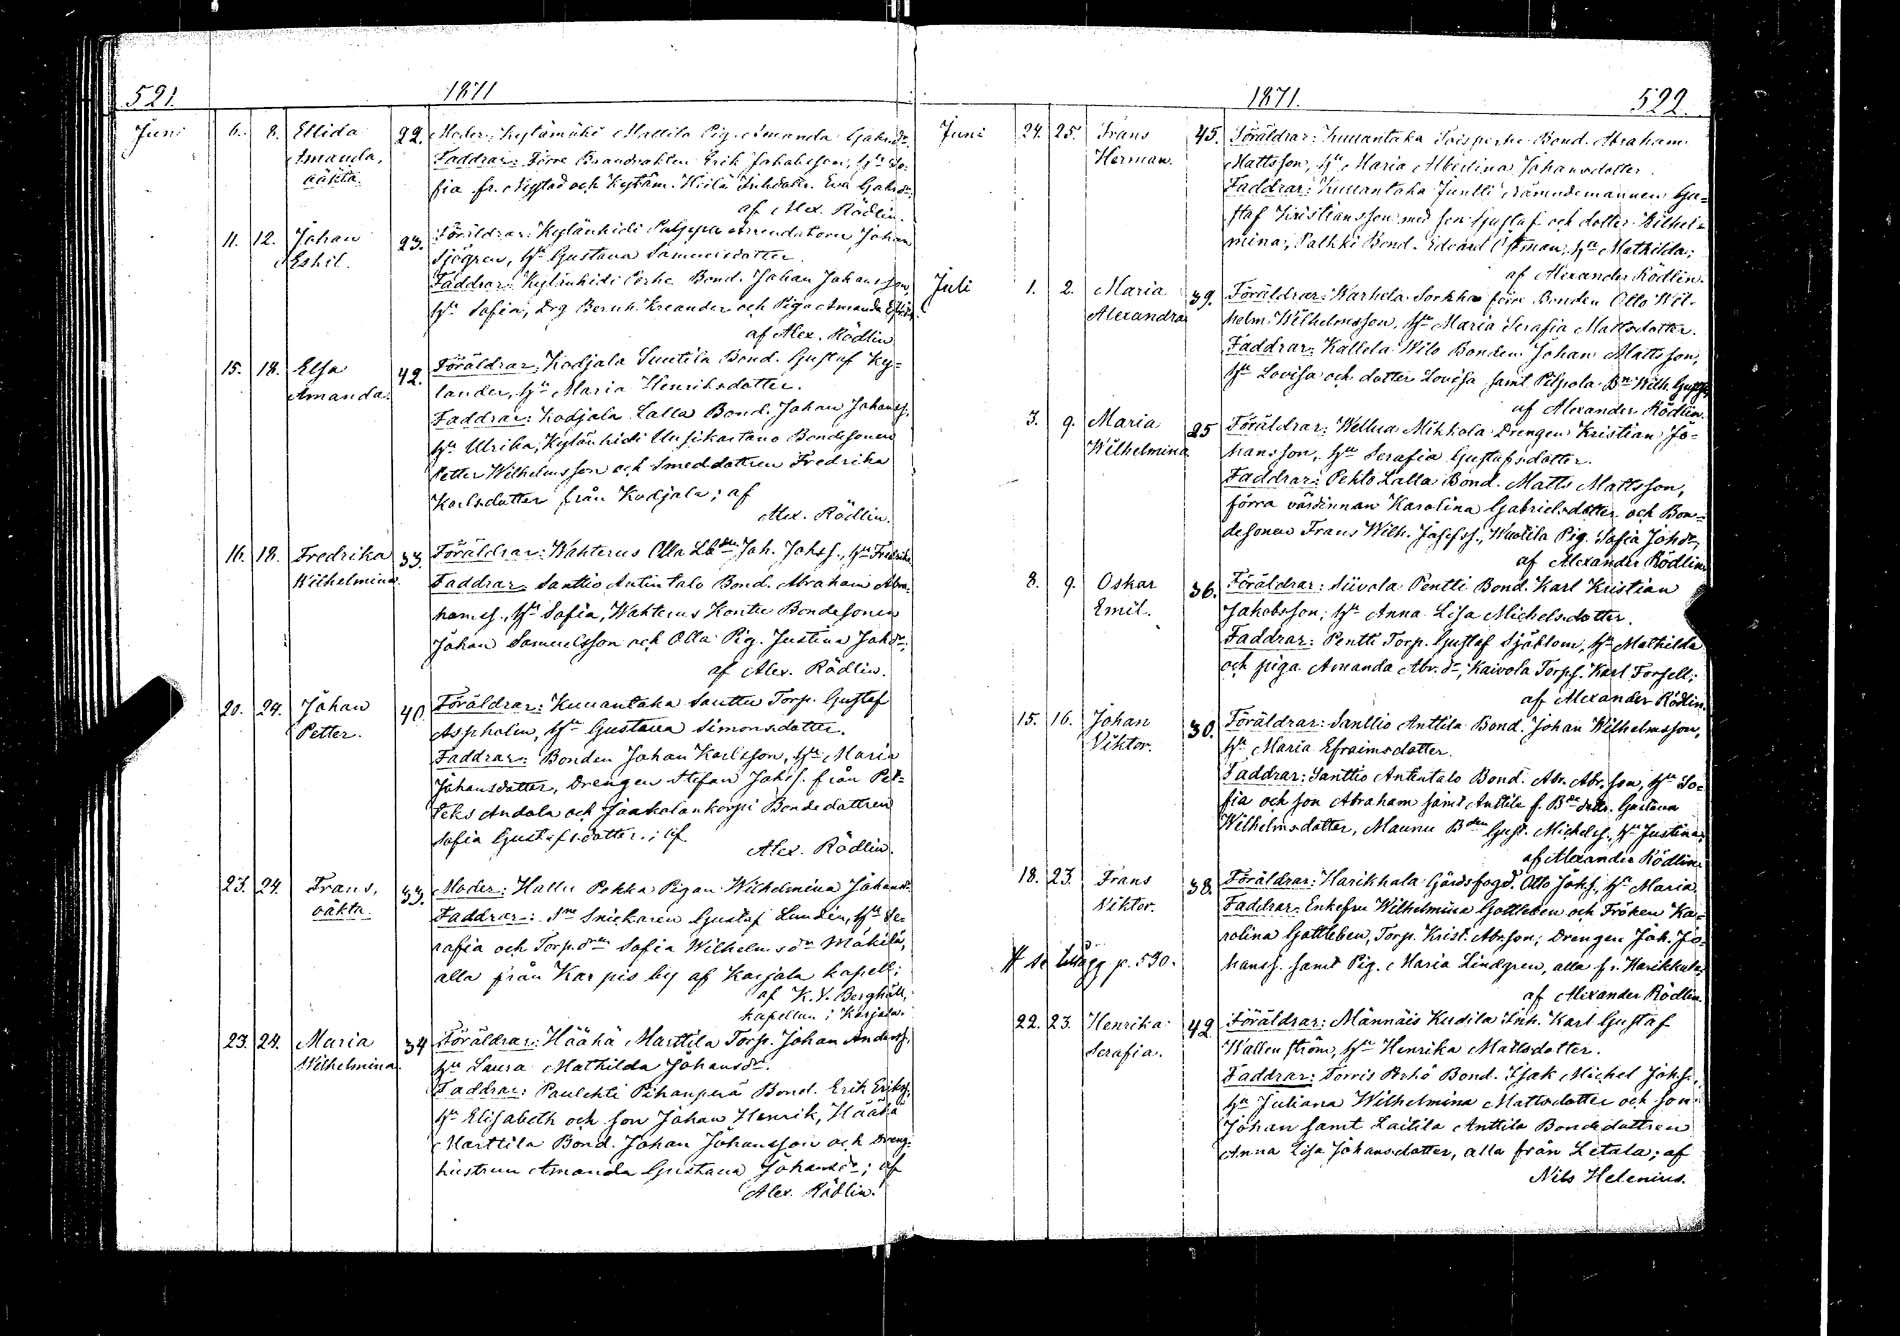 521.
1871
Juni 6. 8. Ellida 22. Moder: Kylämäki Mattila Pig. Amanda Gabrsdr.
Amanda, Faddrar: Förre Brandvakten Erik Jakobsson, hu So-
oäkta. fia fr. Nystad och Kyläm. Inhdottr. Eva Gabrsdr.
af Alex. Rödlin.
11. 12. Johan 23. Föräldrar: Kylänhidi arrendatorn Johan
Eshil. Sjögren, hu Gustava Samuelsdotter.
Faddrar: Kylänhidi Perhe Bond. Johan Johansson,
hu Sofia, Drg Bernh. Kreander och Piga Amanda
af Alex. Rödlin
15. 18. Elsa 42. Föräldrar: Kodjala Suutila Bond. Gustaf Ky-
Amanda. lander, hu Maria Henriksdotter.
Faddrar: Kodjala Lalla Bond. Johan Johanss.
hu Ulrika, Kylänhidi Uusikartano Bondesonen
Petter Wilhelmsson och Smeddottren Fredrika
Karlsdotter från Kodjala; af
Alex. Rödlin.
16. 18. Fredrika 33. Föräldrar: Wahterus Olla Joh. Johss., hu Fredrika
Wilhelmina. Faddrar: Santtio Antintalo Bond. Abraham Abra-
hamss., hu Sofia, Wahterus Konttu Bondesonen
Johan Samuelsson och Olla Pig. Justina Johdr.;
af Alex. Rödlin.
20. 24. Johan 40. Föräldrar: Kuuantaka Santtu Torp. Gustaf
Petter. Aspholm, hu Gustava Simonsdotter.
Faddrar: Bonden Johan Karlsson, hu Maria
Johansdotter, Drengen Stefan Johss. från Pel-
teks Andola och Jaakolankorpi Bondedottren
Sofia Gustafsdotter.; af
Alex. Rödlin.
23. 24. Frans, 33. Moder: Hallu Pekka Pigan Wilhelmina Johansdr.
oäkta. Faddrar: Snickaren Gustaf Lundin, hu Se-
rafia och Torp.drn Sofia Wilhelmsdr Mäkilä,
alla från Karpis by af Karjala kapell;
af K. V. Berghäll,
kapellan i Karjala.
23. 24. Maria 34 Föräldrar: Häähä Marttila Torp. Johan Anderss.
Wilhelmina. hu Laura Mathilda Johansdr.
Faddrar: Paulehti Pihanperä Bond. Erik Erikss.
hu Elisabeth och son Johan Henrik, Häähä
Marttila Bond. Johan Johansson och Dreng-
hustrun Amanda Gustava Johansdr; af
Alex. Rödlin.
1871.
522.
Juni 24. 25. Frans 45. Föräldrar: Kuuantaka Bond. Abraham
Herman. Mattsson, hu Maria Albertina Johansdotter.
Faddrar: Kuuantaka Juntti Nämndemannen Gu-
staf Kristiansson med son Gustaf och dotter Wilhel-
mina; Palhki Bond. Edvard Östman, hu Mathilda;
af Alexander Rödlin.
Juli 1. 2. Maria 39. Föräldrar: Warhela Sorkka förre Bonden Otto Wil-
Alexandra. helm Wilhelmsson, hu Maria Serafia Mattsdotter.
Faddrar: Kallela Wilo Bonden Johan Mattsson,
hu Lovisa och dotter Lovisa, samt Pilpola Bn Wilh. Gustfs.
af Alexander Rödlin.
3. 9. Maria 25 Föräldrar: Wellua Mikkola Drengen Kristian Jo-
Wilhelmina. hansson, hu Serafia Gustafsdotter.
Faddrar: Pehto Lalla Bond. Matts Mattsson,
förra värdinnan Karolina Gabrielsdotter och Bon-
desonen Frans Wilh. Josefss., Pig. Sofia Johdr,
af Alexander Rödlin.
8. 9. Oskar 36. Föräldrar: Siivola Pentti Bond. Karl Kristian
Emil. Jakobsson; hu Anna Lisa Michelsdotter.
Faddrar: Pentti Torp. Gustaf Sjöblom, hu Mathilda
och piga Amanda Abr.dr, Kaivola Torps. Karl Forsell;
af Alexander Rödlin.
15. 16. Johan 30. Föräldrar: Santtio Anttila Bond. Johan Wilhelmsson,
Viktor. hu Maria Efraimsdotter.
Faddrar: Santtio Antintalo Bond. Abr. Abr.son, hu So-
fia och son Abraham samt Anttila f. Gustava
Wilhelmsdotter, Maunu Bden Gust. Michelss., hu Justina;
af Alexander Rödlin.
18. 23. Frans 38. Föräldrar: Harikkala Gårdsfogd. Otto Johs., hu Maria
Viktor. Faddrar: Enkefru Wilhelmina Gottleben och Fröken Ka-
rolina Gottleben, Torp. Krist. Abr.son; Drengen Joh. Jo-
# se tillägg p. 530. hanss. samt Pig. Maria Lindgren, alla fr. Harikkala,
af Alexander Rödlin.
22. 23. Henrika 42 Föräldrar: Männäis Kudila Inh. Karl Gustaf
Serafia. Wallenström, hu Henrika Mattsdotter.
Faddrar: Torris Perhö Bond. Isak Michel Johs.,
hu Juliana Wilhelmina Mattsdotter och son
Johan samt Laitila Anttila Bondedottren
Anna Lisa Johansdotter, alla från Letala; af
Nils Helenius.